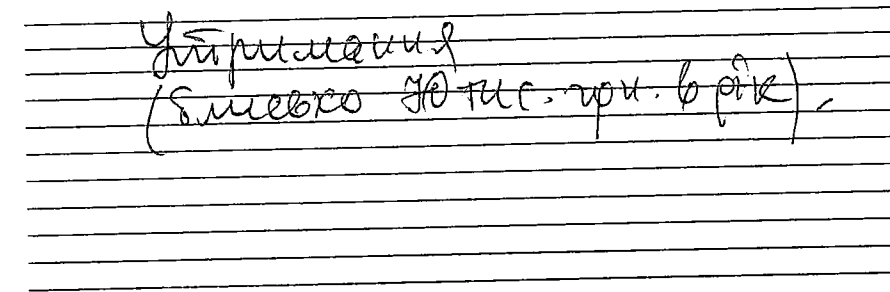 Утримання
(близько 70 тис. грн. в рік).